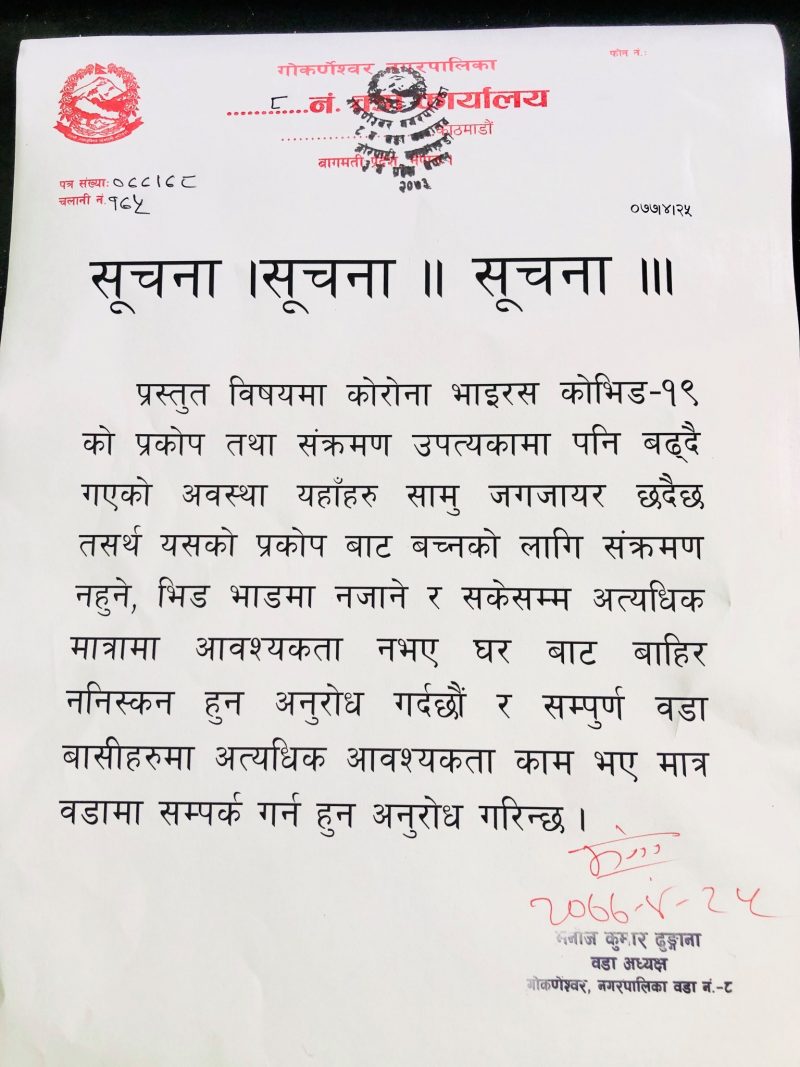 फोन नं.:
गोकर्णेश्वर नगरपालिका
८ नं. वडा कार्यालय
काठमाडौं
बागमती प्रदेश, नेपाल
गोकर्णेश्वर नगरपालिका
२०७३
पत्र संख्या: ०७७।७८
चलानी नं. १६५
०७७।४।२५
सूचना ।सूचना ॥ सूचना ॥।
प्रस्तुत विषयमा कोरोना भाइरस कोभिड-१९
को प्रकोप तथा संक्रमण उपत्यकामा पनि बढ्दै
गएको अवस्था यहाँहरु सामु जगजायर छदैछ
तसर्थ यसको प्रकोप बाट बच्नको लागि संक्रमण
नहुने, भिड भाडमा नजाने र सकेसम्म अत्यधिक
मात्रामा आवश्यकता नभए घर बाट बाहिर
ननिस्कन हुन अनुरोध गर्दछौं र सम्पुर्ण वडा
बासीहरुमा अत्यधिक आवश्यकता काम भए मात्र
वडामा सम्पर्क गर्न हुन अनुरोध गरिन्छ ।
२०७७-४-२५
मनोज कुमार ढुङ्गाना
वडा अध्यक्ष
गोकर्णेश्वर, नगरपालिका वडा नं.-८